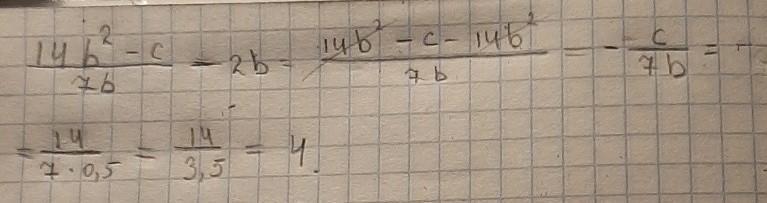 (14b² - c)/(7b) - 2b = (14b² - c - 14b²)/(7b) = - c/(7b) = -
= 14/(7 · 0,5) = 14/3,5 = 4.